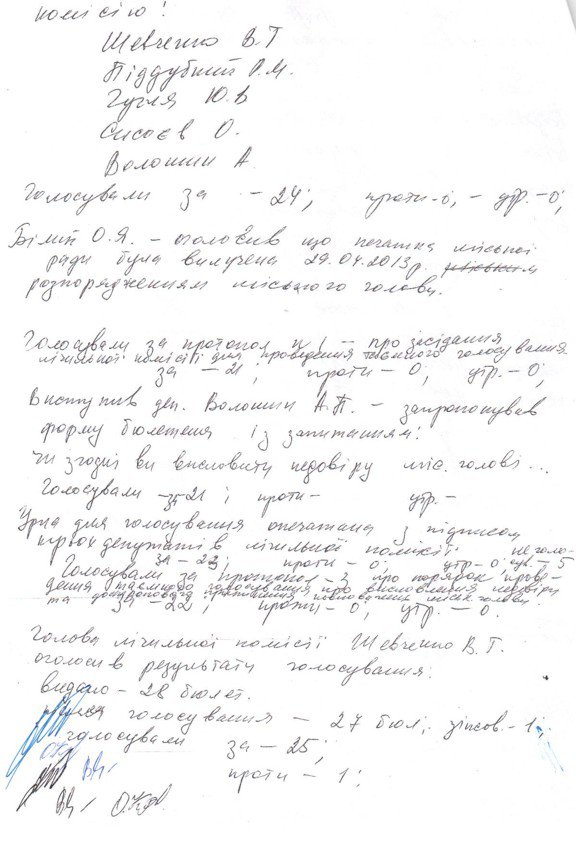 комісію:
Шевченко В.Т
Піддубний Р.М.
Гугля Ю.В
Сисоєв О.
Волошин А.
Голосували за – 24; проти-0, – утр.-0;
Білий О.Я. – оголосив що печатка міської
ради була вилучена 29.04.2013р.
розпорядженням міського голови.
Голосували за протокол № 1 – про засідання
лічильної комісії для проведення таємного голосування
за – 21; проти – 0; утр. – 0;
Виступив деп. Волошин А.П. – запропонував
форму бюлетеня із запитанням:
Чи згодні ви висловити недовіру міс. голові...
Голосували за-21; проти- утр.-
Урна для голосування опечатана з підписом
депутатів лічильної комісії: не голо-
за – 23; проти – 0; утр – 0; 5
Голосували за протокол – 3 про порядок прове-
дення таємного голосування про висловлення недовіри
та дострокове припинення повноважень міськ. голови
за – 22; проти – 0; утр – 0.
Голова лічильної комісії Шевченко В.Т.
оголосив результати голосування:
видано – 28 бюлет.
голосування – 27 бюл; зіпсов. – 1;
голосували за – 25;
проти – 1;